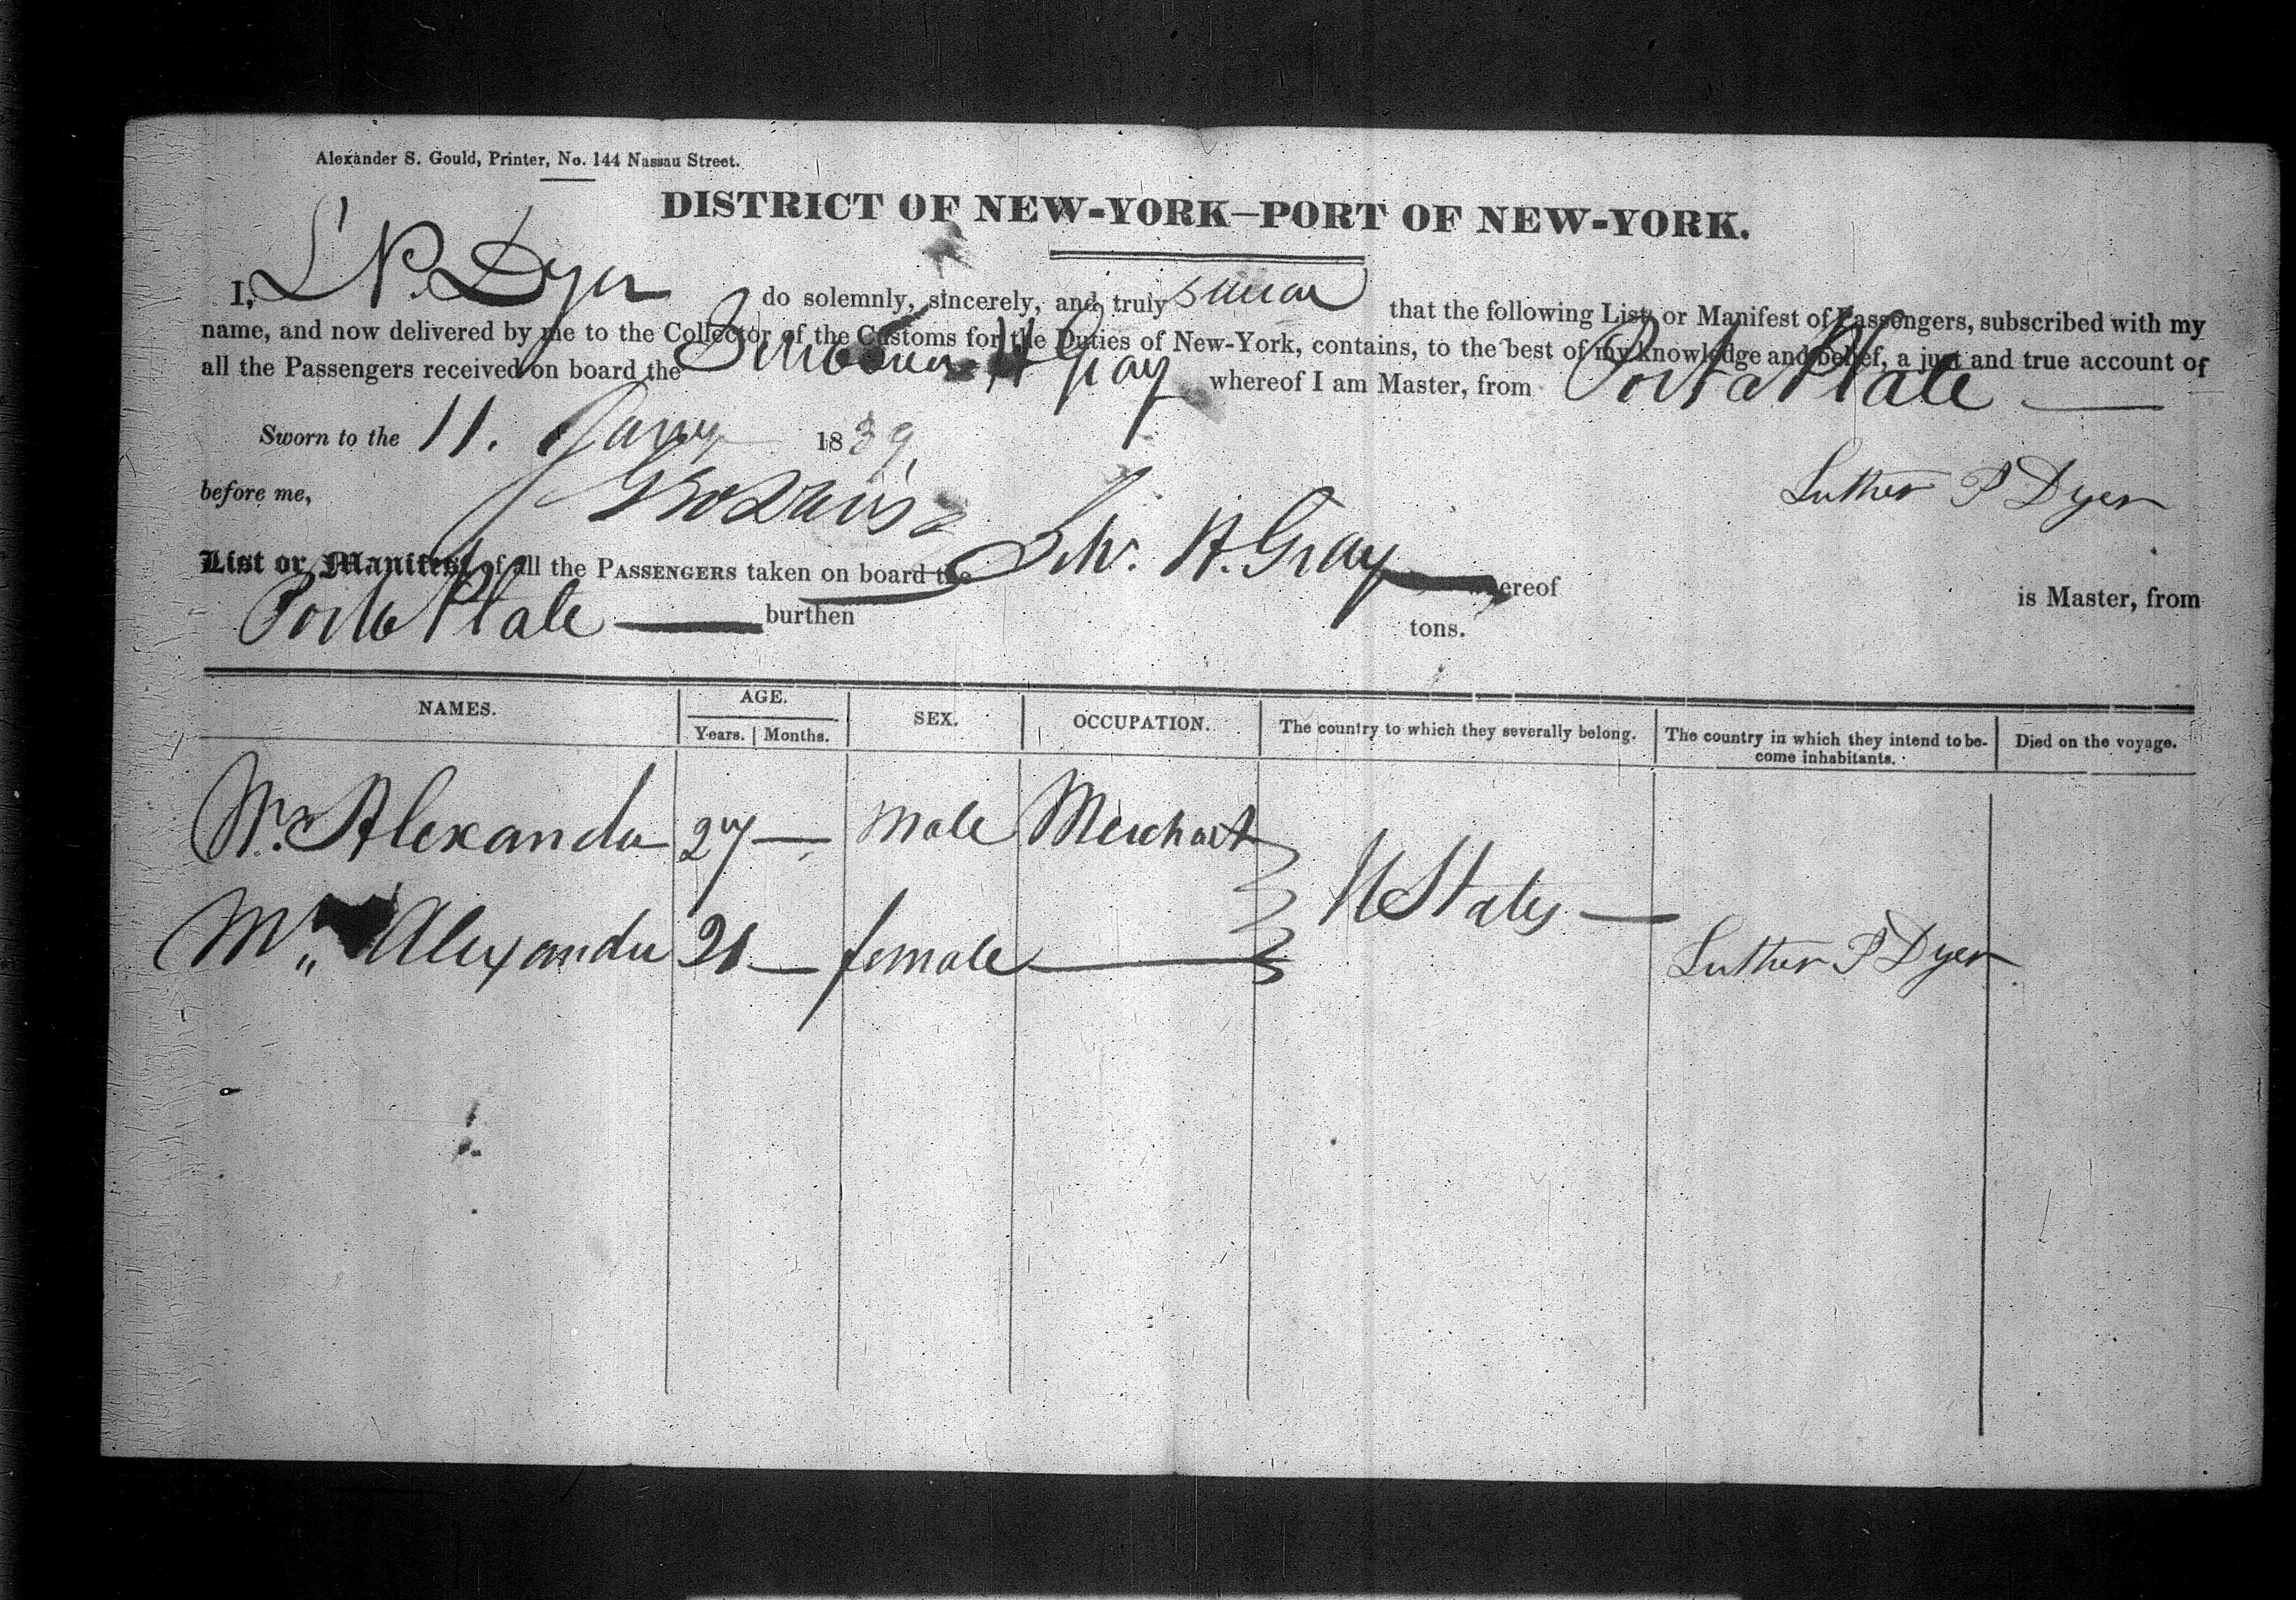 Alexander S. Gould, Printer, No. 144 Nassau Street.
DISTRICT OF NEW-YORK—PORT OF NEW-YORK.
I, L P. Dyer do solemnly, sincerely, and truly swear that the following List or Manifest of Passengers, subscribed with my
name, and now delivered by me to the Collector of the Customs for the Duties of New-York, contains, to the best of my knowledge and belief, a just and true account of
all the Passengers received on board the H Gray whereof I am Master, from Porto Plate
Sworn to the 11. Jany 1839,
before me,
Luther P Dyer
List or Manifest of all the PASSENGERS taken on board the Schr. H. Gray whereof is Master, from
Porto Plate burthen tons.
NAMES. AGE. SEX. OCCUPATION. The country to which they severally belong. The country in which they intend to be- Died on the voyage.
Years. Months. come inhabitants.
Mr. Alexander 27 — male Merchant
U States —
Mrs Alexander 21 — female
Luther P Dyer